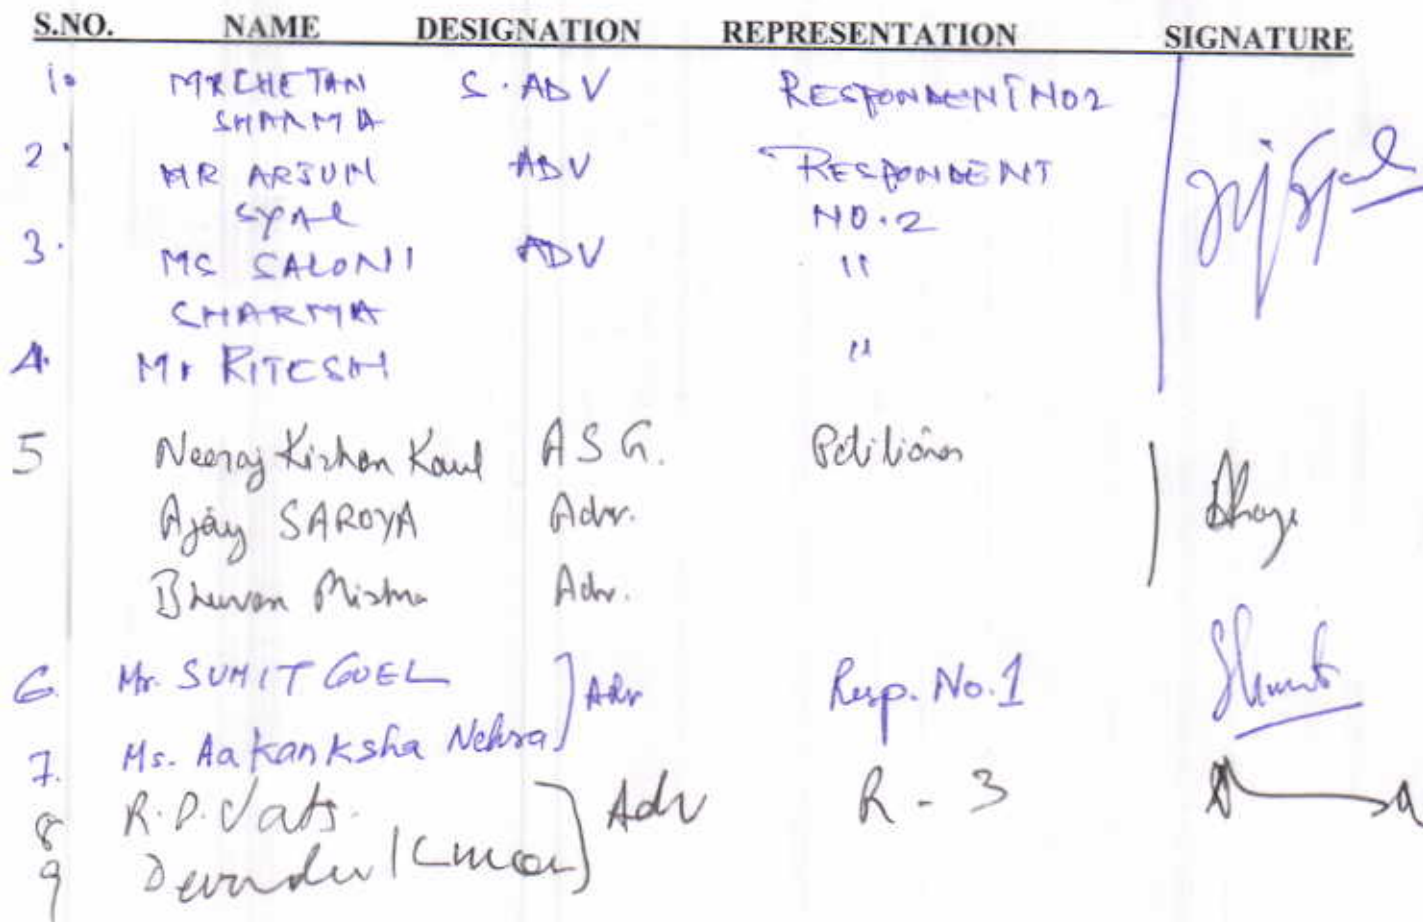 S.NO. NAME DESIGNATION REPRESENTATION SIGNATURE
1. MR CHETAN S. ADV RESPONDENT NO 2
SHARMA
2. MR ARJUN ADV RESPONDENT
SYAL NO. 2
3. MS SALONI ADV "
SHARMA
4. Mr RITESH "
5 Neeraj Kishan Kaul A S G. Petitioner
Ajay SAROYA Adv.
Bhuvan Mishra Adv.
6. Mr. SUMIT GOEL Adv Resp. No. 1
7. Ms. Aakanksha Nehra
8 R.P. Vats. Adv R - 3
9 Devender Kumar